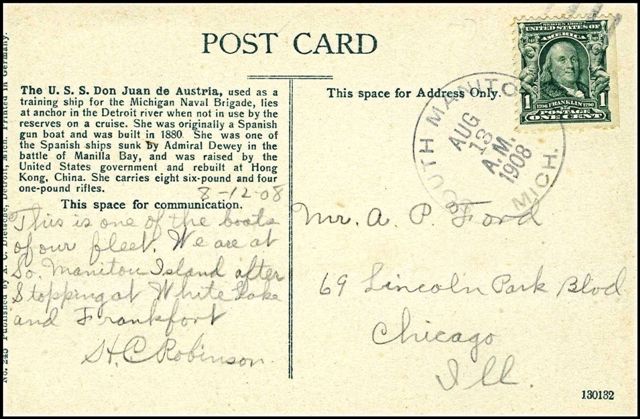 POST CARD
The U. S. S. Don Juan de Austria, used as a
training ship for the Michigan Naval Brigade, lies
at anchor in the Detroit river when not in use by the
reserves on a cruise. She was originally a Spanish
gun boat and was built in 1880. She was one of
the Spanish ships sunk by Admiral Dewey in the
battle of Manilla Bay, and was raised by the
United States government and rebuilt at Hong
Kong, China. She carries eight six-pound and four
one-pound rifles.
8-12-08
This space for communication.
This is one of the boats
of our fleet. We are at
So. Manitou Island after
Stopping at White Lake
and Frankfort
H.C. Robinson.
This space for Address Only.
SERIES 1902
UNITED STATES OF AMERICA
1 FRANKLIN 1
POSTAGE
ONE CENT
SOUTH MANITO
AUG
13
A.M.
1908
MICH.
Mr. A. P. Ford
69 Lincoln Park Blvd
Chicago
Ill.
130132
No. 243 Published by Detroit, Mich. Printed in Germany.